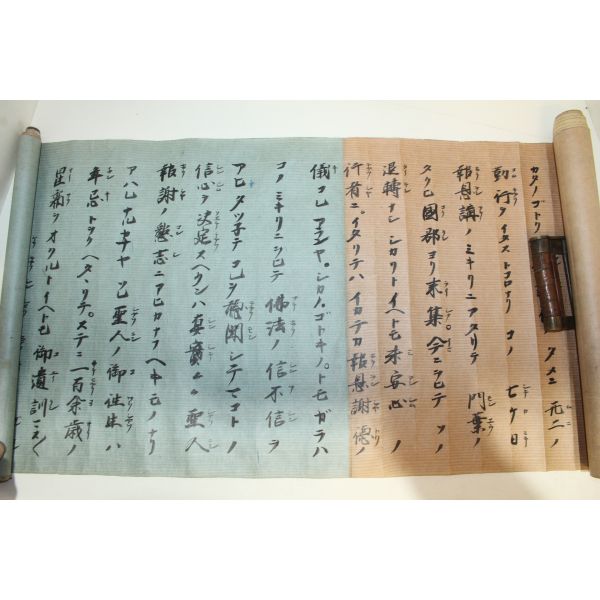 カタノゴトク タメニ 无二ノ
勤行ヲイタストコロナリ コノ 七ケ日
報恩講ノミキリニアタリテ 門葉ノ
タクヒ國郡ヨリ来集今ニヲヒテソノ
退轉ナシシカリトイヘトモ未安心ノ
行者ニ。イタリテハイカテカ報恩謝徳ノ
儀コレアランヤ。シカノ。ゴトキノ。トモガラハ
コノミキリニヲヒテ佛法ノ信不信ヲ
アヒタツ子テコレヲ聴聞シテマコトノ
信心ヲ決定スヘクンハ真實々々聖人
報謝ノ懇志ニアヒカナフヘキモノナリ
アハレナルカナヤソレ聖人ノ御往生ハ
年忌トヲクヘタヽリテ。ステニ一百余歳ノ
星霜ヲオクルトイヘトモ御遺訓マス〱